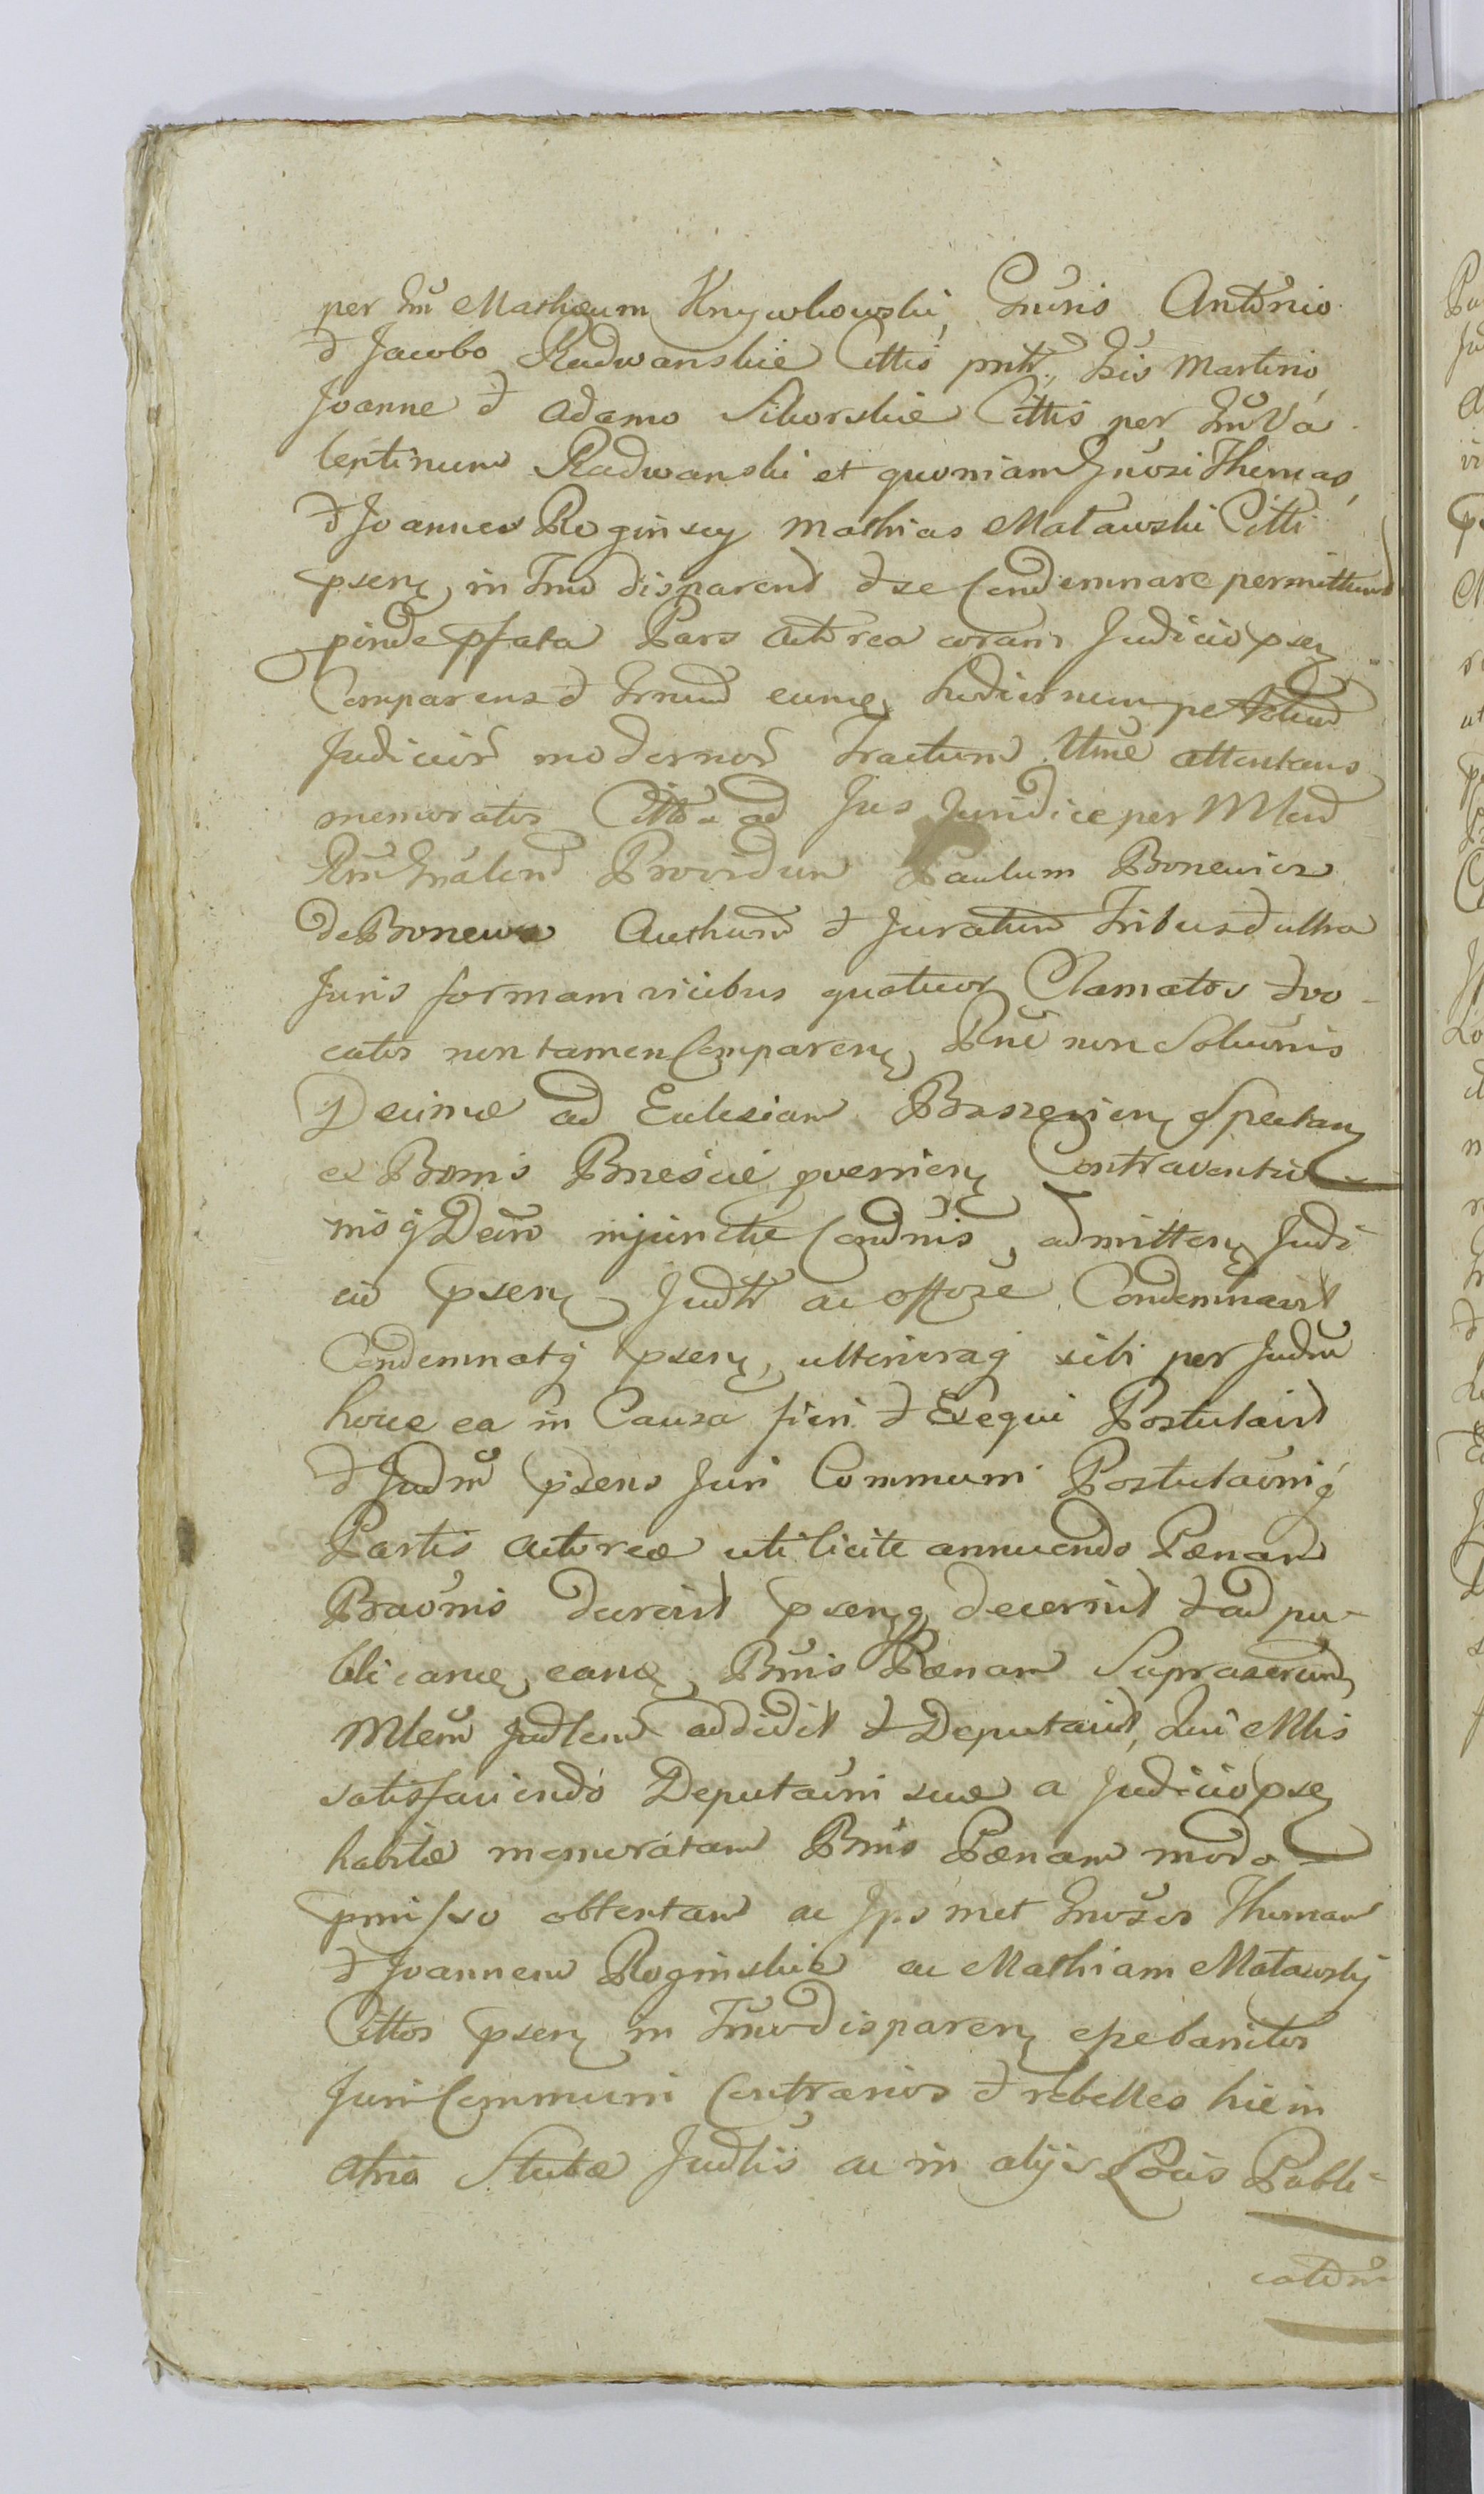 per Gnũ Mathæum Krzywkowski, Gnuris Antonio
& Jacobo Radwanskie Cittis pntr., Gsis Martino
Joanne & Adamo Sikorskie Cittis per Gnũ Va
lentinum Radwanski et quoniam Gnuosi Thomas,
& Joannes Roginscy Mathias Matawski Citti
psen, in Tmno disparend & se Condemnare permittund
pinde pfata Pars Actorea coram Judicio psen
Comparens & Trnum eunde hodiernum pe
Judicior modernor Tractum Ittme attentans
memoratos Cittos ad Jus Juridice per Mlem
Rni Gnalend Providum Paulum Bonewicz
de Bonewa Authum & Juratum Tribus & ultra
Juris formam vicibus quatuor Clamatos & vo-
catos non tamen Comparen, Rne non Solunis
Decimæ ad Ecclesiam Brszevien Spectan
ex Bonis Brzescie pvenien Contraventio
nisq Decũ injunctæ Condnis, admitten Judi
cio psen Judtr ac offose Condemnavit
Condemnatq psen, ulterioraq sibi per Judm
hocce ea in Causa fieri & Exequi Postulavit
& Judm psens Juri Communi Postulaõniq
Partis Actoreæ uti licite annuendo Pænam
Baõnis decrevit psenq decernit & ad pu-
blicand eand Bnis Pænam Suprascrand
Mlem Judlem addidit & Deputavit, Qui Mlis
satisfaciendo Deputaõni suæ a Judicio psen
habitæ memoratam Bnis Pænam modo
pmisso obtentam ac Jpsmet Gnuosos Thomam
& Joannem Roginskie ac Mathiam Matawsky
Cittos psen in Tmno disparen epebanitos
Juri Communi Contrarios & rebelles hic in
atrio Stubæ Judlis ac in alijs Locis Publi-
catum